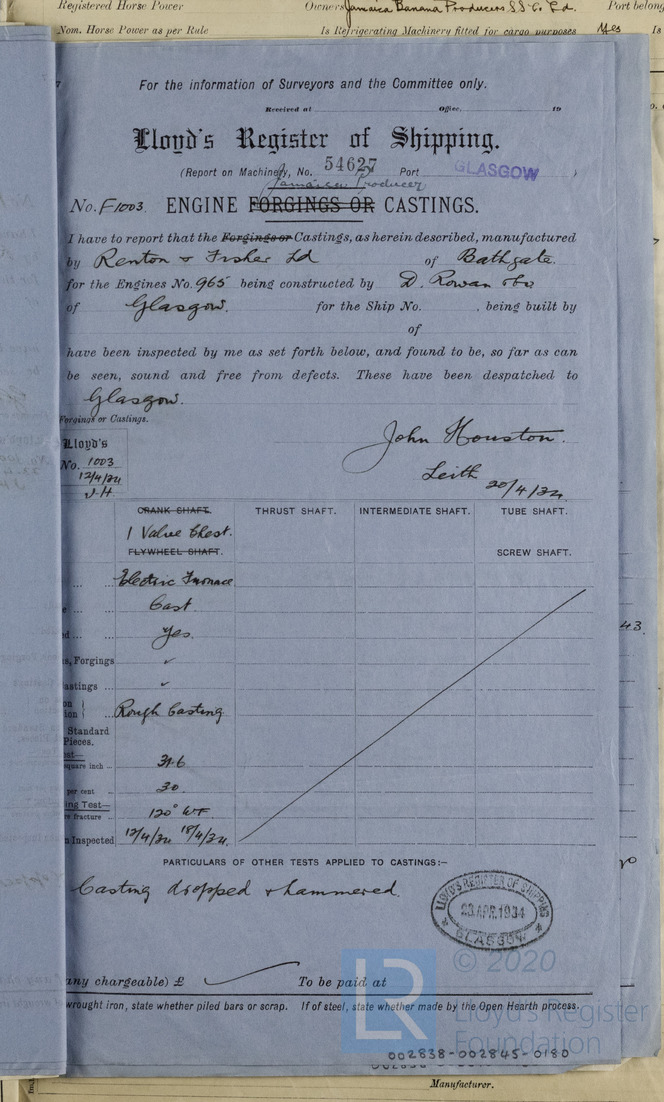 Registered Horse Power Owners Jamaica Banana Producers S.S. Co Ld. Port belong
Nom. Horse Power as per Rule Is Refrigerating Machinery fitted for cargo purposes Yes Is
For the information of Surveyors and the Committee only.
Received at Office, 19
Lloyd's Register of Shipping.
(Report on Machinery, No. 54627 Port GLASGOW )
Jamaica Producer
No. F1003 ENGINE FORGINGS OR CASTINGS.
I have to report that the Forgings or Castings, as herein described, manufactured
by Renton & Fisher Ld of Bathgate.
for the Engines No. 965 being constructed by D. Rowan &Co
of Glasgow. for the Ship No. , being built by
of
have been inspected by me as set forth below, and found to be, so far as can
be seen, sound and free from defects. These have been despatched to
Glasgow.
Forgings or Castings.
Lloyd's
No. 1003
12/4/34
J.H
John Houston.
Leith
20/4/34
CRANK SHAFT. THRUST SHAFT. INTERMEDIATE SHAFT. TUBE SHAFT.
1 Valve Chest.
FLYWHEEL SHAFT. SCREW SHAFT.
... ... Electric Furnace
e ... ... Cast
d ... ... Yes.
43.
s, Forgings ✓
astings ... ✓
on
ion } ... Rough Casting
Standard
Pieces.
est—
square inch ... 31.6
per cent ... 30
ing Test—
re fracture ... 120° WF
n Inspected 12/4/34 18/4/34.
PARTICULARS OF OTHER TESTS APPLIED TO CASTINGS:—
Casting dropped & hammered.
LLOYD'S REGISTER OF SHIPPING
23 APR. 1934
GLASGOW
© 2020
any chargeable) £ To be paid at
wrought iron, state whether piled bars or scrap. If of steel, state whether made by the Open Hearth process.
LR
Lloyd's Register
Foundation
002838-002845-0180
Manufacturer.